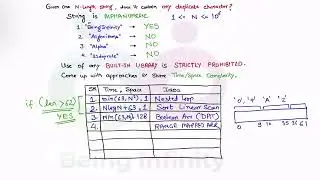 Given one N-length string, does it contain any duplicate character?
String is ALPHANUMERIC 1 <= N <= 10⁶
1. "BeingInfinity" → YES
2. "Algorithms" → NO
3. "Alpha" → NO
→ NO
Use of any BUILT-IN LIBRARY is STRICTLY PROHIBITED.
Come up with approaches & share Time/Space Complexity.
S# Time, Space Idea
1. min(63,N²), 1 Nested loop
2. NlogN+63, 1 Sort Linear Scan
3. Min(63,N) 128 Boolean Arr (DAT)
4. RANGE MAPPED ARR
if (len >62)
YES
'0' '9' 'A' 'Z'
0 9 10 35 36 61
Being Infinity